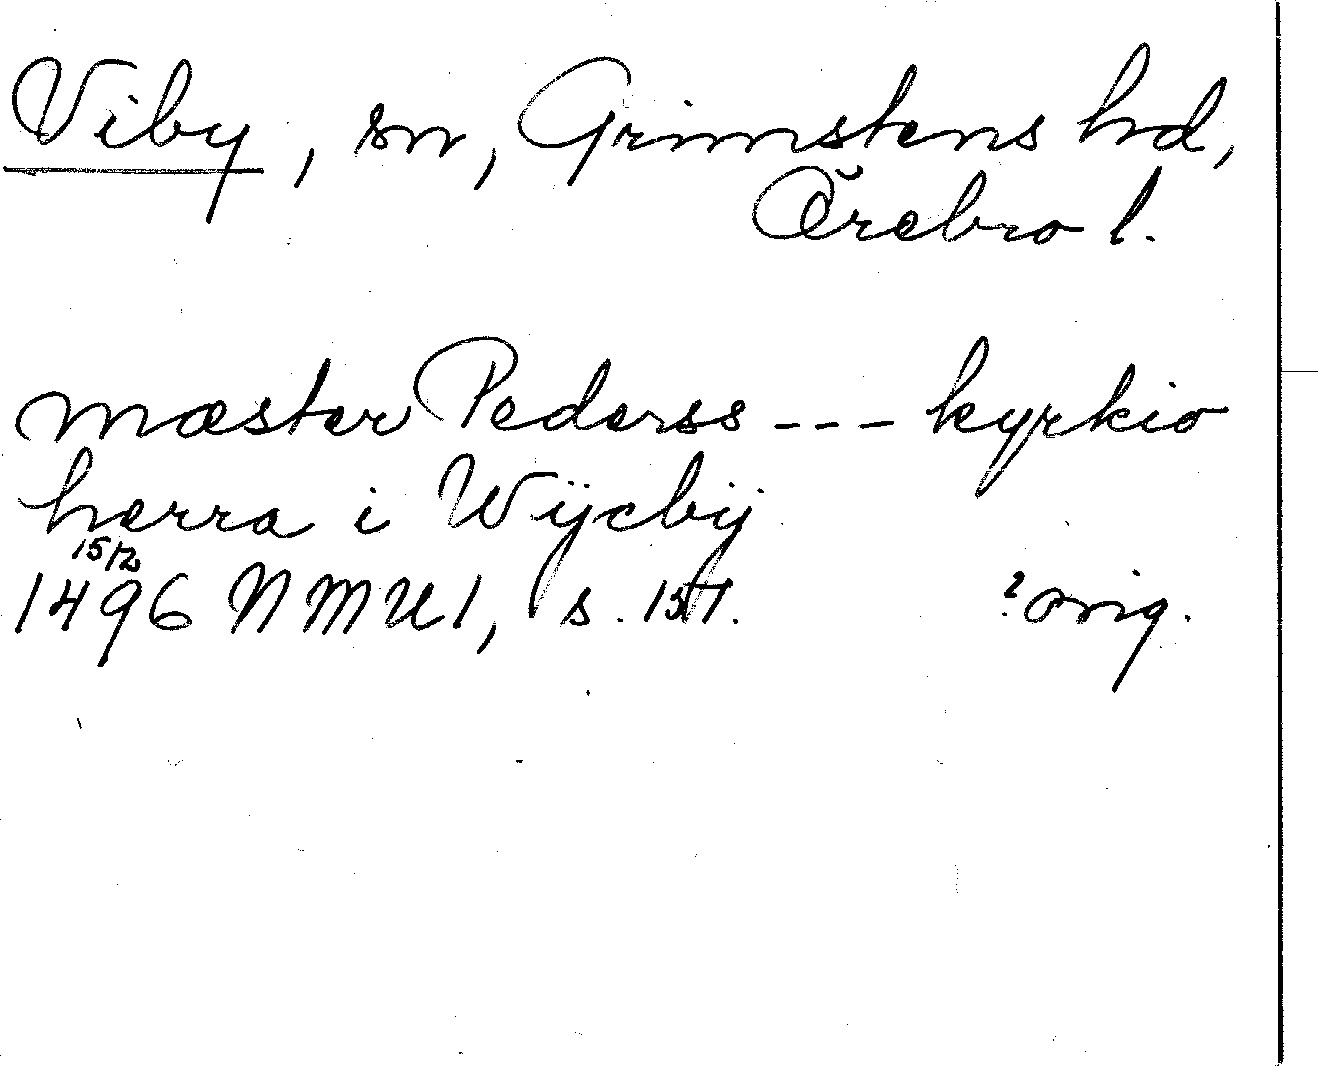 Viby, sn, Grimstens hd,
Örebro l.
mæster Pederss --- kyrkio
herra i Wÿcbÿ
15/2
1496 NMU 1, s. 157. ? orig.